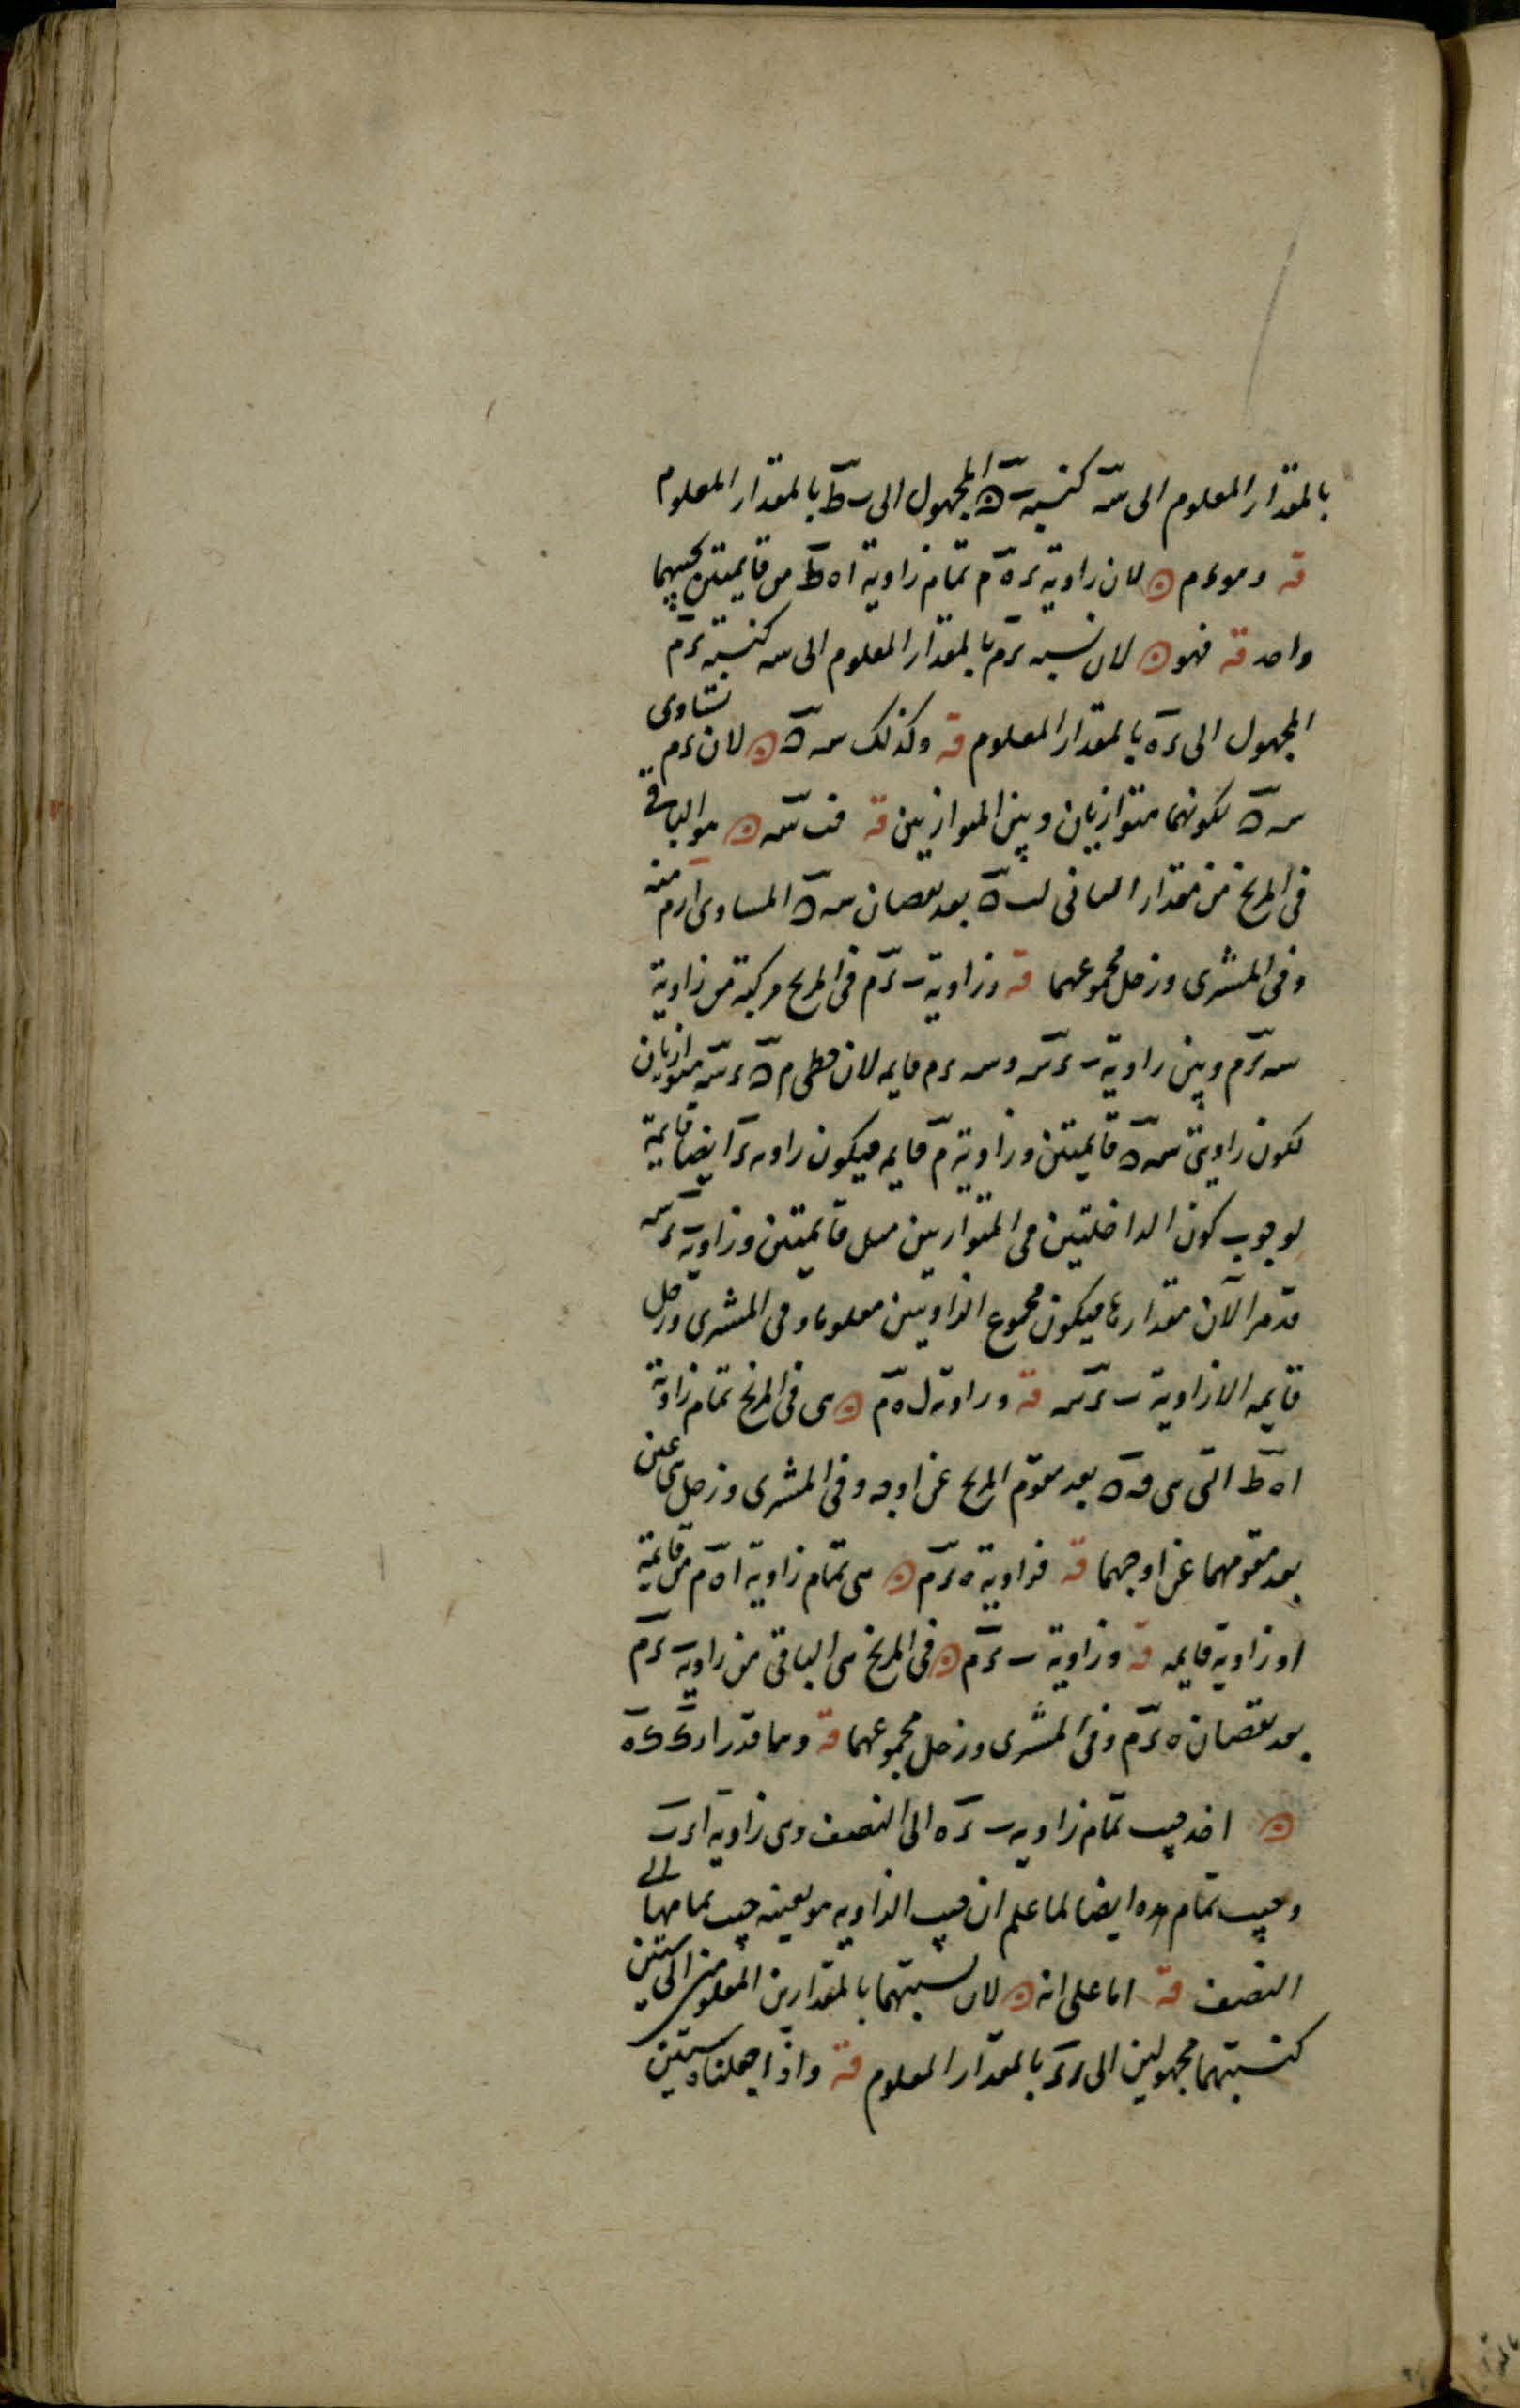 بالمقدار المعلوم الى سه كنسبة ب ه المجهول الى ب ط بالمقدار المعلوم
قه وهو ء م ں لان زاوية ء ه م تمام زاوية ا ه ط من قايمتين فجيبهما
واحد قه فهو ں لان نسبة ء م بالمقدار المعلوم الى سه كنسبة ء م
المجهول الى ء ه بالمقدار المعلوم قه وكذلك سه ه ں لان ء م تساوى
سه ه لكونهما متوازيان وبين المتوازيين قه فب سه ں هو الباقى
فى المريخ من مقدار الباقى لب ه بعد نقصان سه ه المساوى ء م منه
وفى المشترى وزحل مجموعهما قه وزاوية ب ء م فى المريخ مركبة من زاوية
سه ء م وبين زاوية ب ء سه و سه ء م قايمه لان خطى م ه ء سه متوازيان
لكون زاويتى سه ه قايمتين وزاوية م قايمه فيكون زاويه ء ايضا قايمة
لوجوب كون الداخلتين فى المتوازيين مثل قايمتين وزاوية ب ء سه
قد مر الآن مقدارها فيكون مجموع الزاويتين معلوما وفى المشترى وزحل
قايمه الا زاوية ب ء سه قه وزاوية ل ه م ں هى فى المريخ تمام زاوية
ا ه ط التى هى ق ه بعد مقوم المريخ عن اوجه وفى المشترى وزحل هى عين
بعد مقومهما عن اوجهما قه فزاوية ه ء م ں هى تمام زاوية ا ه م من قايمة
او زاوية قايمه قه وزاوية ب ء م ں فى المريخ هى الباقى من زاوية ب ء م
بعد نقصان ه ء م وفى المشترى وزحل مجموعهما قه وهما قدرا د ك ك ه
ں اخذ جيب تمام زاويه ب ء ه الى النصف وهى زاوية ا ء ب
وجيب تمام هذه ايضا لما علم ان جيب الزاويه هو بعينه جيب تمامها الى
النصف قه اما على انه ں لان نسبتهما بالمقدارين المعلومين الى ستين
كنسبتهما مجهولين الى ء ء بالمقدار المعلوم قه واذا جعلناه ستين